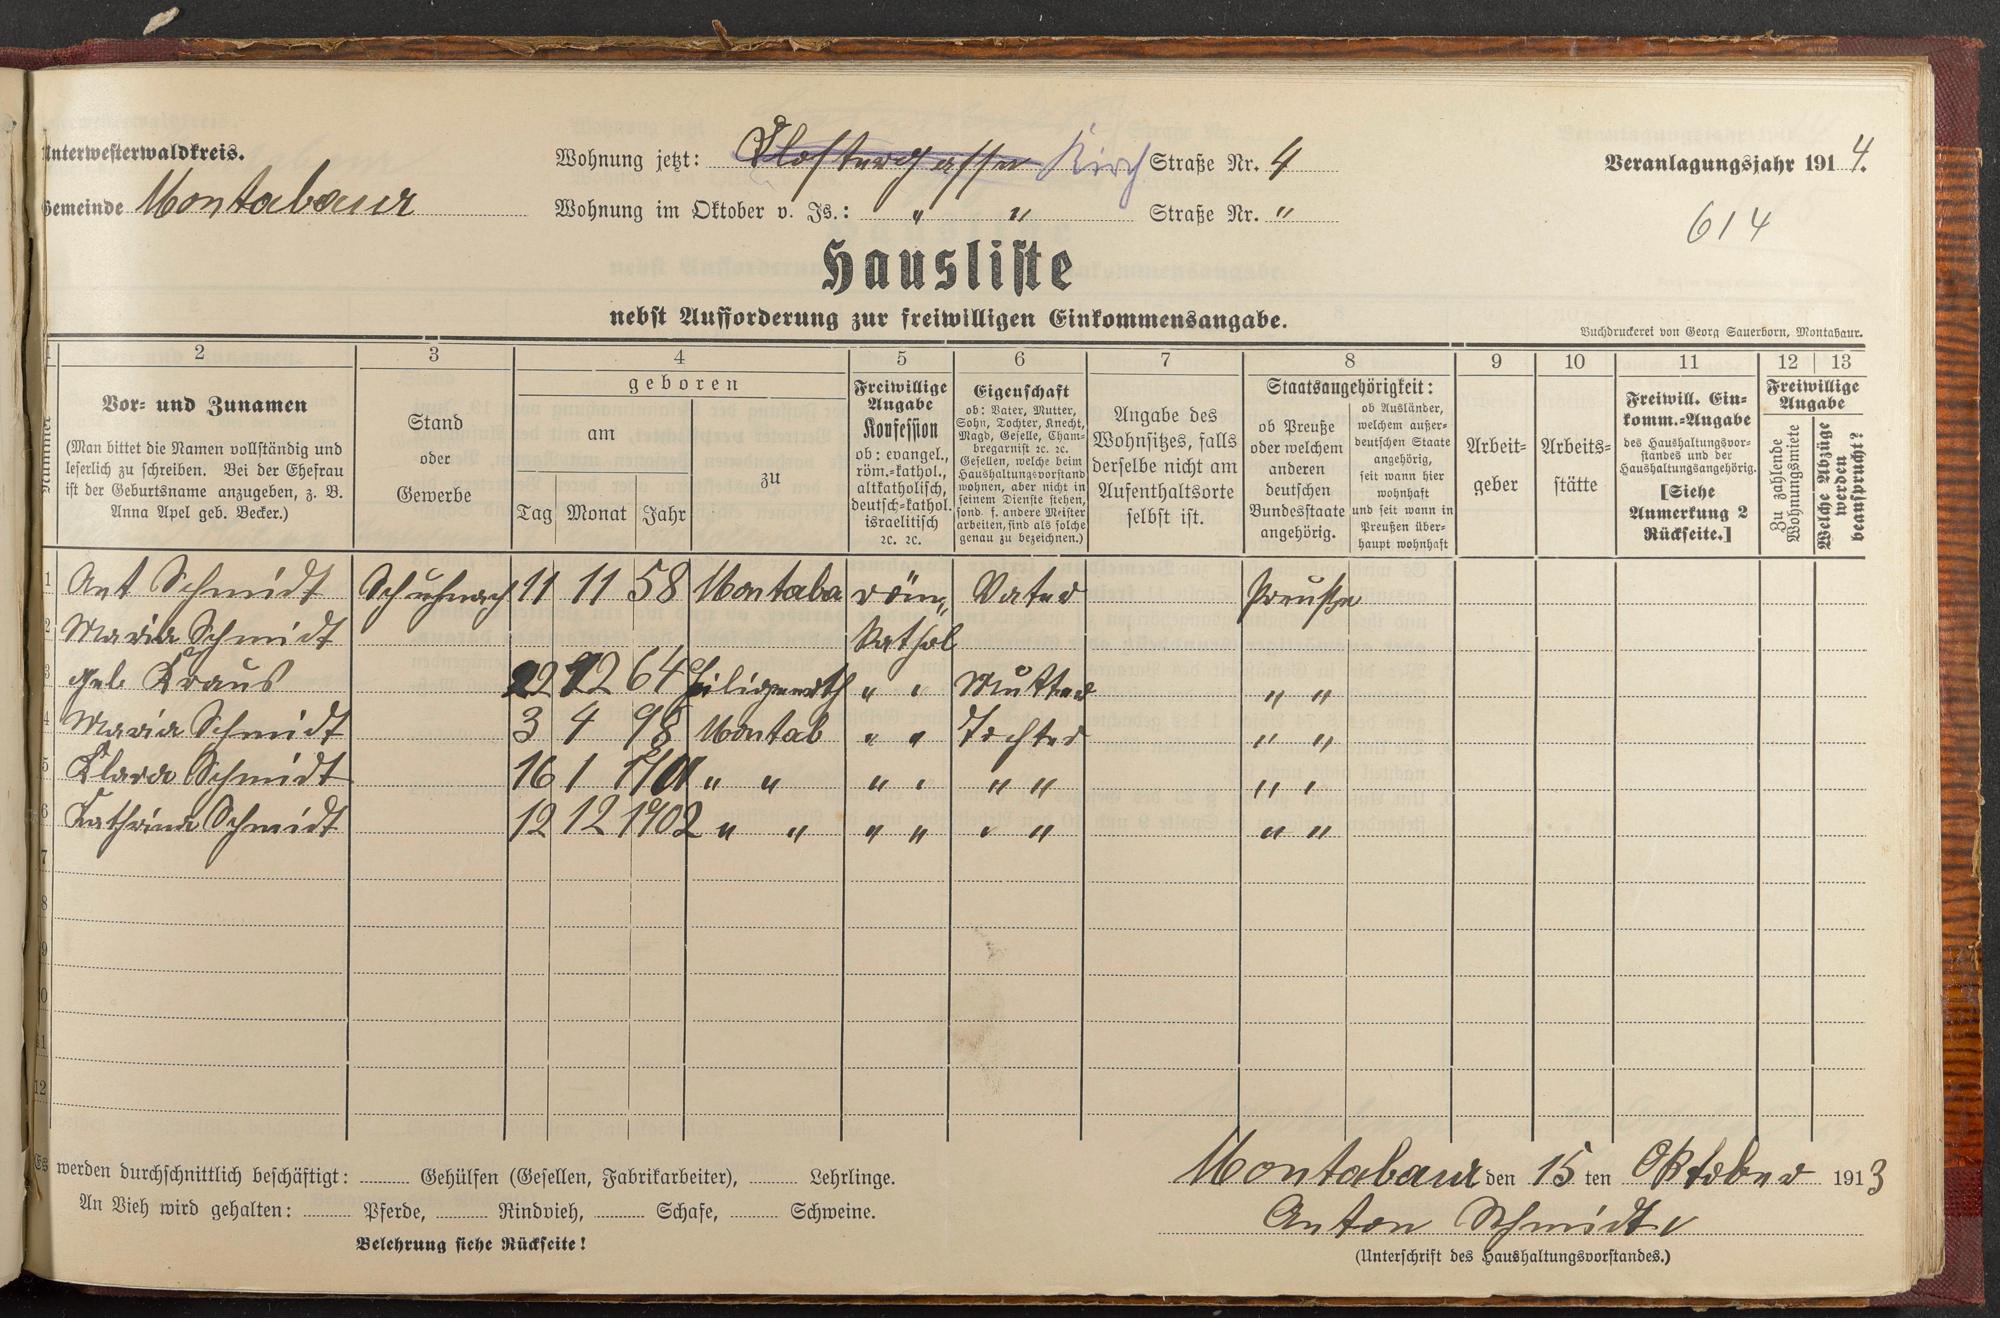 Unterwesterwaldkreis.
Wohnung jetzt: Klostergasse Kirch Straße Nr. 4
Veranlagungsjahr 1914.
Gemeinde Montabaur
Wohnung im Oktober v. Js.: " " Straße Nr. "
614
Hausliste
nebst Aufforderung zur freiwilligen Einkommensangabe.
Buchdruckerei von Georg Sauerborn, Montabaur.
1 2 3 4 5 6 7 8 9 10 11 12 13
Nummer
Vor- und Zunamen
(Man bittet die Namen vollständig und
leserlich zu schreiben. Bei der Ehefrau
ist der Geburtsname anzugeben, z. B.
Anna Apel geb. Becker.)
Stand
oder
Gewerbe
geboren
am
zu
Tag Monat Jahr
Freiwillige
Angabe
Konfession
ob: evangel.,
röm.-kathol.,
altkatholisch,
deutsch-kathol.
israelitisch
2c. 2c.
Eigenschaft
ob: Vater, Mutter,
Sohn, Tochter, Knecht,
Magd, Geselle, Cham-
bregarnist 2c. 2c.
Gesellen, welche beim
Haushaltungsvorstand
wohnen, aber nicht in
seinem Dienste stehen,
sond. f. andere Meister
arbeiten, sind als solche
genau zu bezeichnen.)
Angabe des
Wohnsitzes, falls
derselbe nicht am
Aufenthaltsorte
selbst ist.
Staatsangehörigkeit:
ob Preuße
oder welchem
anderen
deutschen
Bundesstaate
angehörig.
ob Ausländer,
welchem außer-
deutschen Staate
angehörig,
seit wann hier
wohnhaft
und seit wann in
Preußen über-
haupt wohnhaft
Arbeit-
geber
Arbeits-
stätte
Freiwill. Ein-
komm.-Angabe
des Haushaltungsvor-
standes und der
Haushaltungsangehörig.
[Siehe
Anmerkung 2
Rückseite.]
Freiwillige
Angabe
Zu zahlende
Wohnungsmiete
Welche Abzüge
werden
beansprucht?
1 Ant Schmidt Schuhmach 11 11 58 Montaba röm. Vater Preuße
2 Maria Schmidt Kathol
3 geb Kraus 22 12 64 Heiligenroth " " Mutter " "
4 Maria Schmidt 3 4 98 Montab " " Tochter " "
5 Klara Schmidt 16 1 1901 " " " " " " " "
6 Kathrina Schmidt 12 12 1902 " " " " " " " "
7
8
9
10
11
12
Es werden durchschnittlich beschäftigt: Gehülfen (Gesellen, Fabrikarbeiter), Lehrlinge.
An Vieh wird gehalten: Pferde, Rindvieh, Schafe, Schweine.
Belehrung siehe Rückseite!
Montabaur den 15 ten Oktober 1913
Anton Schmidt
(Unterschrift des Haushaltungsvorstandes.)